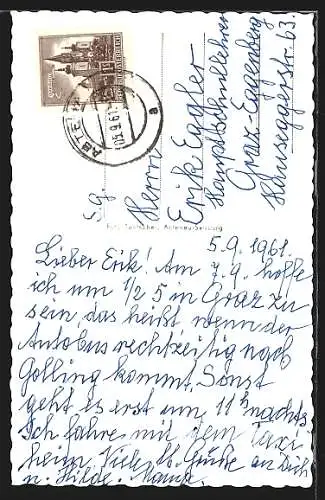 S.g.
Herrn
Erik Eagler
Hauptschullehrer
Graz-Eggenberg
63.
ABTENAU
5.9.1961.
Lieber Erik! Am 7.9. hoffe
ich um 1/2 5 in Graz zu
sein, das heißt wenn der
Autobus rechtzeitig nach
Golling kommt. Sonst
geht es erst um 11h nachts.
Ich fahre mit dem Taxi
heim. Viele lb. Grüße an Dich
u. Hilde. Mama.